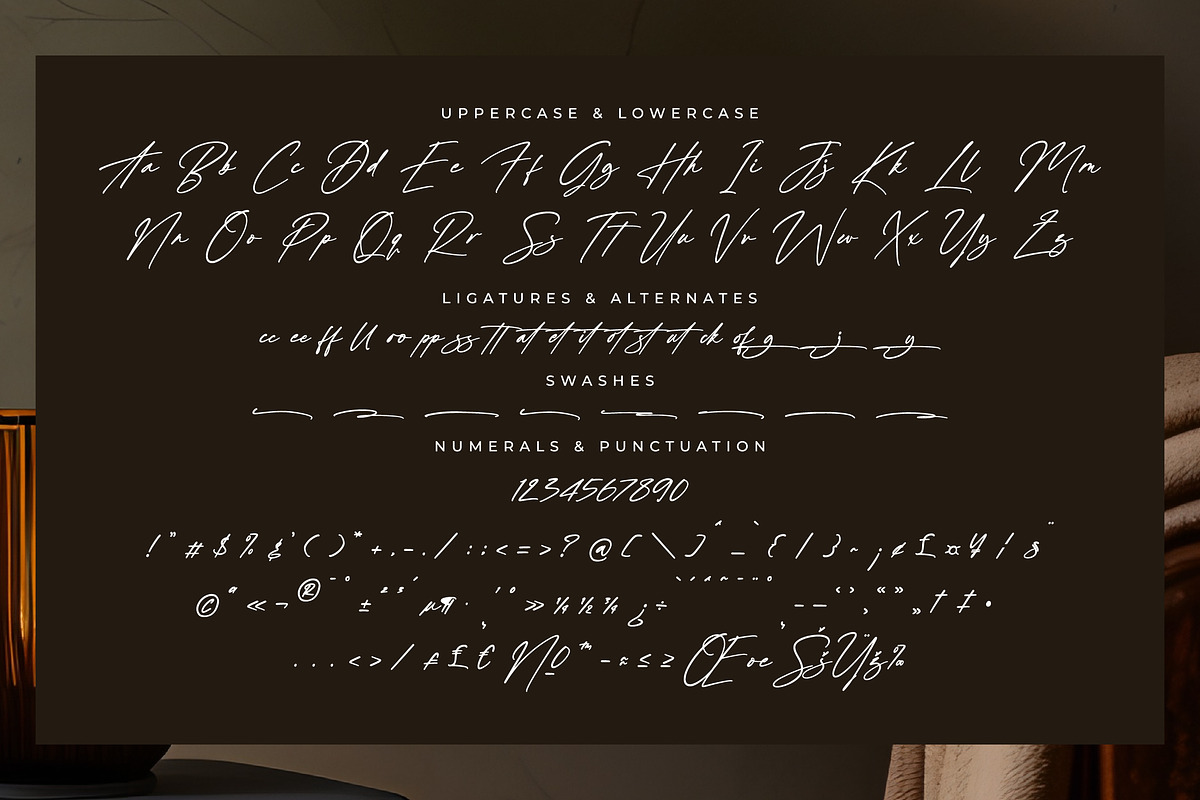 UPPERCASE & LOWERCASE
Aa Bb Cc Dd Ee Ff Gg Hh Ii Jj Kk Ll Mm
Nn Oo Pp Qq Rr Ss Tt Uu Vv Ww Xx Yy Zz
LIGATURES & ALTERNATES
cc ee ff ll oo pp ss tt at et it ot st ut ck of g j y
SWASHES
NUMERALS & PUNCTUATION
1234567890
! " # $ % & ' ( ) * + , - . / : ; < = > ? @ [ \ ] ^ _ ` { | } ~ ¡ ¢ £ ¤ ¥ ¦ § ¨
© ª « ¬ ® ¯ ° ± ² ³ ´ µ ¶ · ¸ ¹ º » ¼ ½ ¾ ¿ ÷ – — ‘ ’ ‚ “ ” „ † ‡ •
… ‹ › / ₤ € № ™ − ≈ ≤ ≥ Œ œ Š š Ÿ ž ‰